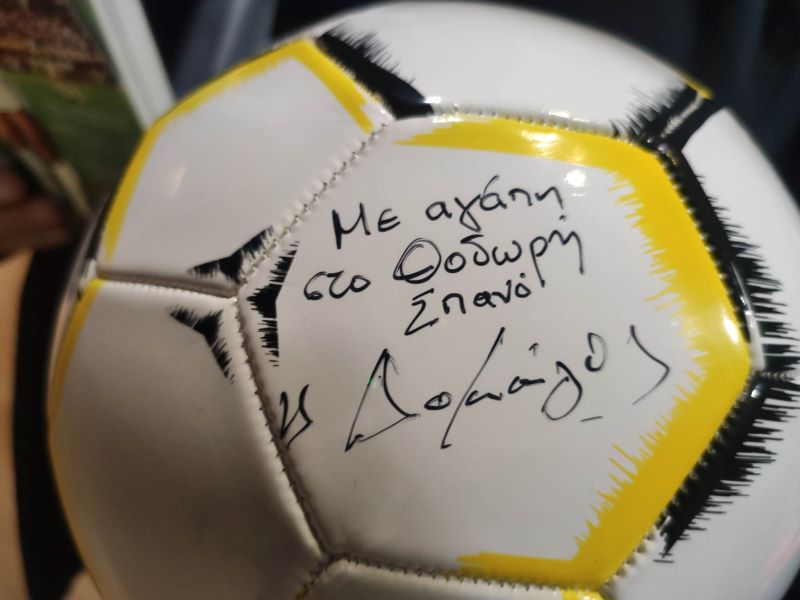 Με αγάπη
στο Θοδωρή
Σπανό